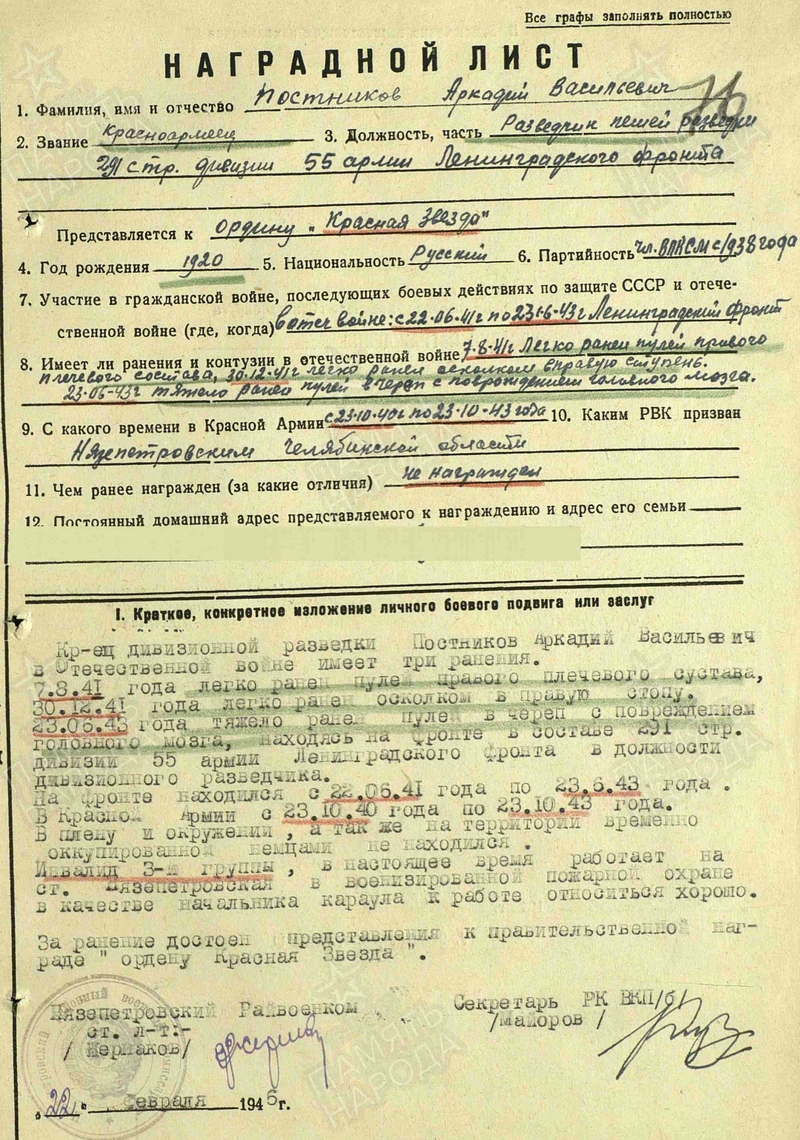 Все графы заполнять полностью
НАГРАДНОЙ ЛИСТ
1. Фамилия, имя и отчество Постников Аркадий Васильевич
2. Звание Красноармеец 3. Должность, часть Разведчик пешей разведки
291 стр. дивизии 55 армии Ленинградского фронта
Представляется к Ордину „Красная Звезда"
4. Год рождения 1920 5. Национальность Русский 6. Партийность чл. ВЛКСМ с 1938 года
7. Участие в гражданской войне, последующих боевых действиях по защите СССР и отече-
ственной войне (где, когда) в отеч войне: с 22.06.41г по 23.6.43г Ленинградский фронт
8. Имеет ли ранения и контузии в отечественной войне 7.8.41г Легко ранен пулей правого
плечевого состава, 30.12.41г легко ранен осколком в правую ступень.
23.06.43г тяжело ранен пулей в череп с поврождением головного мозга.
9. С какого времени в Красной Армии с 23.10.40г по 23.10.43 года 10. Каким РВК призван
Нязепетровским Челябинской области
11. Чем ранее награжден (за какие отличия) не награжден
12. Постоянный домашний адрес представляемого к награждению и адрес его семьи
I. Краткое, конкретное изложение личного боевого подвига или заслуг
Кр-ец дивизионной разведки Постников Аркадий Васильевич
в Отечественной войне имеет три ранения.
7.8.41 года легко ранен пулей правого плечевого сустава,
30.12.41 года легко ранен осколком в правую стопу.
23.06.43 года тяжело ранен пулей в череп с повреждением
головного мозга, находясь на фронте в составе 291 стр.
дивизии 55 армии Ленинградского фронта в должности
дивизионного разведчика.
На фронте находился с 22.06.41 года по 23.6.43 года.
В Красной Армии с 23.10.40 года по 23.10.43 года.
В плену и окружении, а так же на территории временно
оккупированной немцами не находился.
Инвалид 3-й группы, в настоящее время работает на
ст. Нязепетровская в военизированной пожарной охране
в качестве начальника караула к работе относиться хорошо.
За ранение достоен представления к правительственной наг-
раде " ордену Красная Звезда ".
Нязепетровский Райвоенком Секретарь РК ВКП/б/
ст. л-т:- /Майоров /
/ Керпаков/
„22" февраля 1946 г.
ПАМЯТЬ НАРОДА